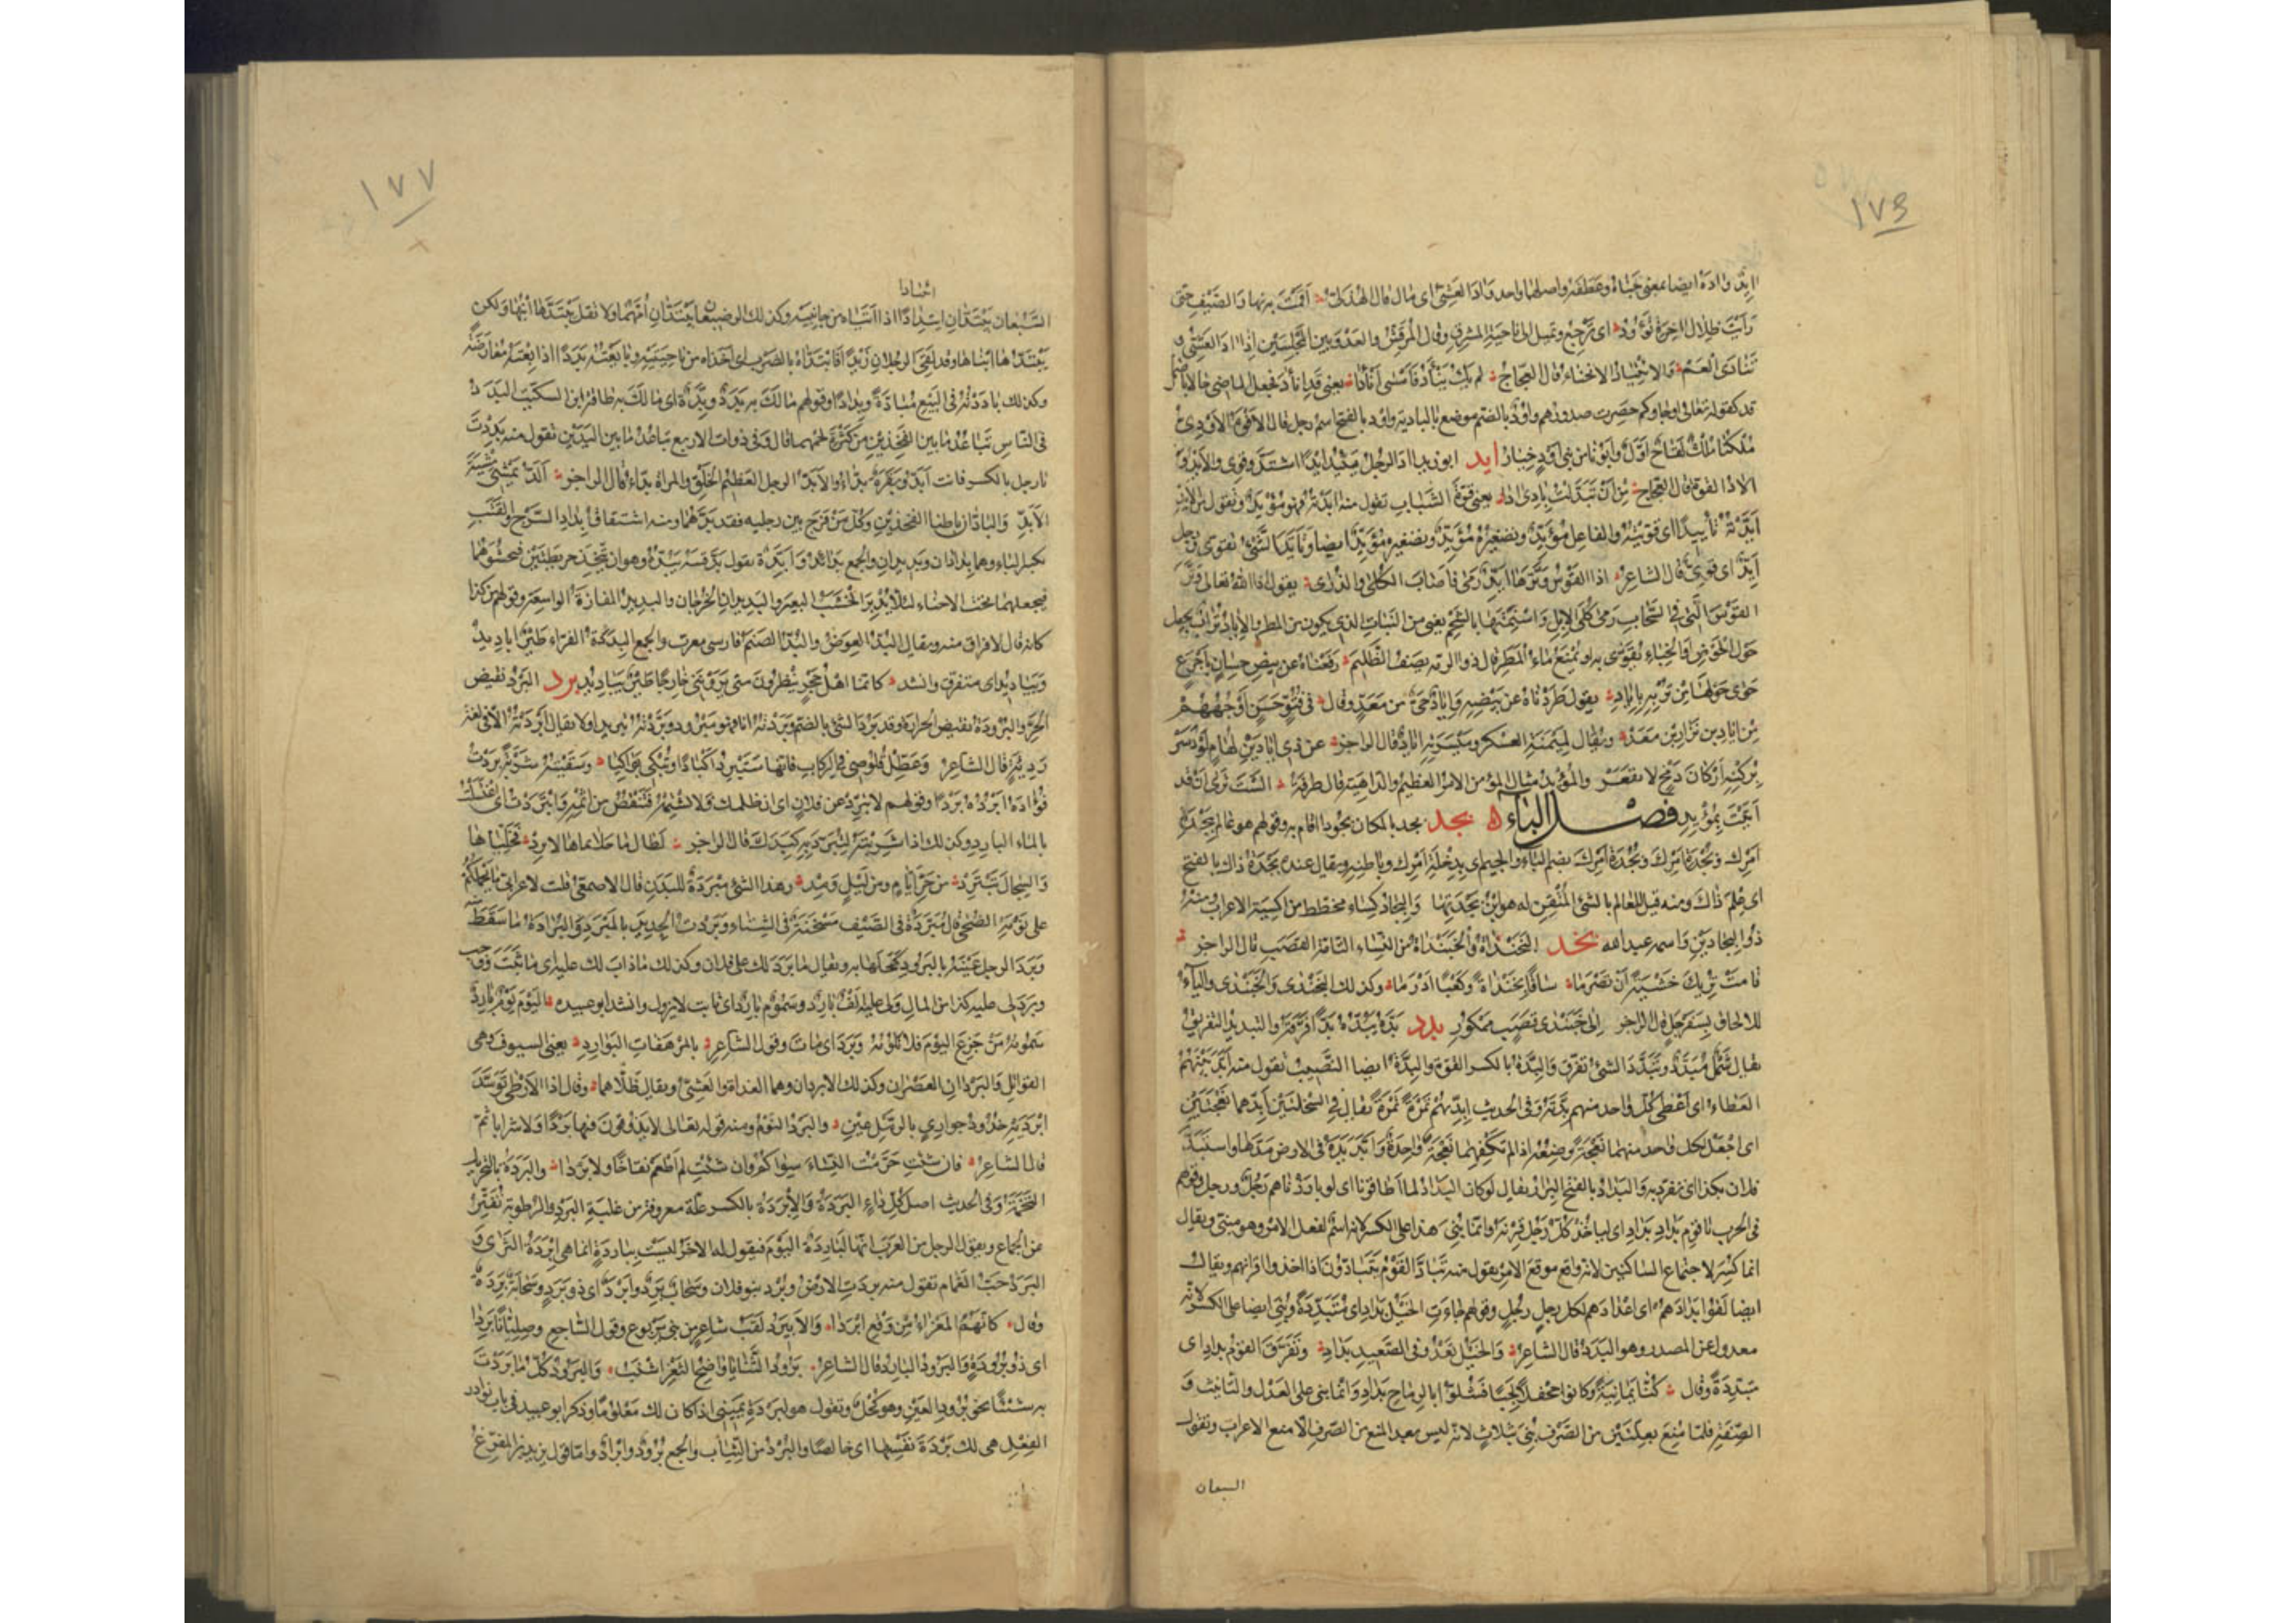 ١٧٦
اید واده ایضا بمعنی حناه وعطفه واصلهما واحد واد العشی ای مال قال الهذلی اقمت به نهار الصیف حتی
رأیت ظلال اخره تؤود ای ترجع وتمیل الی ناحیة المشرق وقال المرقش والعدو بین المجلسین اذا اد العشی و
تنادی العم والانئیاد الانحناء قال العجاج لم یک ینأد فامسی انأدا یعنی قد انأد فجعل الماضی حالا باضمار
قد کقوله تعالی او جاوکم حصرت صدورهم واود بالضم موضع بالبادیه واود بالفتح اسم رجل قال الافوه الاودی
ملکنا ملک لقاح اول وابونا من بنی اود خیار اید ابو زید اد الرجل یئید ایدا اشتد وقوی والاید و
الاد القوة قال العجاج من ان تبدلت بادی ادا یعنی قوة الشباب تقول منه ایدته فهو مؤید وتقول من الاید
ایدته تأییدا ای قویته والفاعل مؤید وتصغیره مؤید ایضا وتأید الشئ تقوی ورجل
اید ای قوی قال الشاعر اذا القوس وترها اید رمی فاصاب الکلی والذری یقول اذا الله تعالی وتر
القوس التی فی السحاب رمی کلی الابل واسنمتها بالشحم یعنی من النبات الذی یکون من المطر والایاد تراب یجعل
حول الحوض او الخباء یقوی به او یمنع ماء المطر قال ذو الرمه یصف الظلیم دفعناه عن بیض حسان باجرع
حوی حولها من تربه بایاد یقول طردناه عن بیضه وایاد حی من معد وقال فی فتو حسن اوجههم
من ایاد بن نزار بن معد ویقال لمیمنة العسکر ومیسرته ایاد قال الراجز عن ذی ایادین لهام لو دسر
برکنه ارکان دمخ لانقعر والمؤید مثال المؤمن الامر العظیم والداهیة قال طرفة الست تری ان قد
اتیت بمؤید فصل الباء بجد بجد بالمکان بجودا اقام به وقولهم هو عالم ببجدة
امرک وبجدة امرک وبجدة امرک بضم الباء والجیم ای بدخلة امرک وباطنه ویقال عنده بجدة ذلک بالفتح
ای علم ذاک ومنه قیل للعالم بالشئ المتقن له هو ابن بجدتها والبجاد کساء مخطط من اکسیة الاعراب ومنه
ذو البجادین واسمه عبد الله بخد البخنداة والخبنداة من النساء التامة القصب قال الراجز
قامت تریک خشیة ان تصرما ساقا بخنداة وکعبا ادرما وکذلک البخندی والخبندی والیاء
للالحاق بسفرجل قال الراجز الی خبندی قصب ممکور بدد بده یبده بدا فرقه والتبدید التفریق
یقال شمل مبدد وتبدد الشئ تفرق والبدة بالکسر القوة والبدة ایضا النصیب تقول منه ابد بینهم
العطاء ای اعطی کل واحد منهم بدته وفی الحدیث ابدیهم تمرة تمرة یقال فی السخلتین ابدهما نعجتین
ای اجعل لکل واحد منهما نعجة ترضعه اذا لم تکفهما نعجة واحدة وابد یده فی الارض مدها واستبد
فلان بکذا ای تفرد به والبداد بالفتح البراز یقال لو کان البداد لما اطاقونا ای لو بارزناهم رجل ورجل وقولهم
فی الحرب یا قوم بداد بداد ای لیأخذ کل رجل قرنه وانما بنی هذا علی الکسر لانه اسم لفعل الامر وهو مبنی ویقال
انما کسر لاجتماع الساکنین لانه واقع موقع الامر تقول منه تباد القوم یتبادون اذا اخذوا اقرانهم ویقال
ایضا لقوا بدادهم ای اعدادهم لکل رجل رجل وقولهم جاءت الخیل بداد ای متبددة وبنی ایضا علی الکسر لانه
معدول عن المصدر وهو البدد قال الشاعر والخیل تعدو فی الصعید بداد وتفرق القوم بداد ای
متبددة وقال کنا ثمانیة وکانوا جحفلا لجبا فشلوا بالرماح بداد وانما بنی علی العدل والتانیث و
الصفة فلما منع بعلتین من الصرف بنی بثلاث لانه لیس بعد المنع من الصرف الا منع الاعراب وتقول
السبعان
١٧٧
السبعان یبتدان الرجل ابتدادا اذا اتیاه من جانبیه وکذلک الرضیعان یبتدان امهما ولا نقل یبتدها ابنها ولکن
یبتدها ابناها وقد لقی الرجلان زیدا فابتداه بالضرب ای اخذاه من ناحیتیه وبایعته بددا اذا بعته معارضة
وکذلک باددته فی البیع مبادة وبدادا وقولهم مالک به بدد وبدة ای مالک به طاقة ابن السکیت البدد
فی الناس تباعد ما بین الفخذین من کثرة لحمهما قال وفی ذوات الاربع تباعد ما بین الیدین تقول منه بددت
یا رجل بالکسر فانت ابد وبقرة بداء والابد الرجل العظیم الخلق والمراة بداء قال الراجز الد یمشی مشیة
الابد والبادان باطنا الفخذین وکل من فرج بین رجلیه فقد بدهما ومنه اشتقاق بداد السرج والقتب
بکسر الباء وهما بدادان وبدیدان والجمع بدائد وابدة تقول بد قتبه یبده وهو ان یتخذ خریطتین فیحشوهما
فیجعلهما تحت الاحناء لئلا یدبر الخشب البعیر والبدیدان الخرجان والبدید المفازة الواسعة وقولهم من کذا
کانه قال لافراق منه ویقال البد العوض والبد الصنم فارسی معرب والجمع البددة الفراء طیر ابادید
ویبادید ای متفرق وانشد کانما اهل حجر ینظرون متی یروننی خارجا طیر یبادید برد البرد نقیض
الحر والبرودة نقیض الحرارة وقد برد الشئ بالضم وبردته انا فهو مبرود وبردته تبریدا ولا یقال ابردته الا فی لغة
ردیئة قال الشاعر وعطل قلوصی فی الرکاب فانها ستبرد اکبادا وتبکی بواکیا وسقیته شربة بردت
فؤاده تبرده بردا وقولهم لا تبرد عن فلان ای ان ظلمک فلا تشتمه فتنقص من اثمه وابتردت ای اغتسلت
بالماء البارد وکذلک اذا شربته لتبرد به کبدک قال الراجز لطال ما حلأتماها لا ترد فخلیاها
والسجال تبترد من حر ایام ومن لیل ومد وهذا الشئ مبردة للبدن قال الاصمعی قلت لاعرابی ما یحملکم
علی نومة الضحی قال مبردة فی الصیف مسخنة فی الشتاء وبردت الحدید بالمبرد والبرادة ما سقط منه
وبرد الرجل عینه بالبرود کحلها به ویقال ما برد لک علی فلان وکذلک ما ذاب لک علیه ای ما ثبت ووجب
وبرد لی علیه کذا من المال ولی علیه الف بارد وسموم بارد ای ثابت لا یزول وانشد ابو عبیده الیوم یوم بارد
سمومه من جزع الیوم فلا تلومه وبرد ای مات وقول الشاعر بالمرهفات البوارد یعنی السیوف وهی
القواتل والبردان العصران وکذلک الابردان وهما الغداة والعشی ویقال ظلاهما وقال اذا الارطی توسد
ابردیه خدود جوازئ بالرمل عین والبرد النوم ومنه قوله تعالی لا یذوقون فیها بردا ولا شرابا ثم
قال الشاعر فان شئت حرمت النساء سواکم وان شئت لم اطعم نقاخا ولا بردا والبردة بالتحریک
التخمة وفی الحدیث اصل کل داء البردة والابردة بالکسر علة معروفة من غلبة البرد والرطوبة تفتر
عن الجماع ویقول الرجل من العرب انها لباردة الیوم فیقول له الاخر لیست بباردة انما هی ابردة الثری و
البرد حب الغمام تقول منه بردت الارض وبرد بنو فلان وسحاب برد وابرد ای ذو برد وسحابة بردة
وقال کانهم المعزاء من وقع ابردا والابیرد لقب شاعر من بنی یربوع وقول الساجع وصلیانا بردا
ای ذو برودة والبرود البارد قال الشاعر برود الثنایا واضح الثغر اشنب والبرود کل ما بردت
به شیئا نحو برود العین وهو کحل وتقول هو لبردة یمینی اذا کان لک معلوما وذکر ابو عبید فی باب نوادر
الفعل هی لک بردة نفسها ای خالصا والبرد من الثیاب والجمع برود وابراد واما قول یزید بن المفرغ